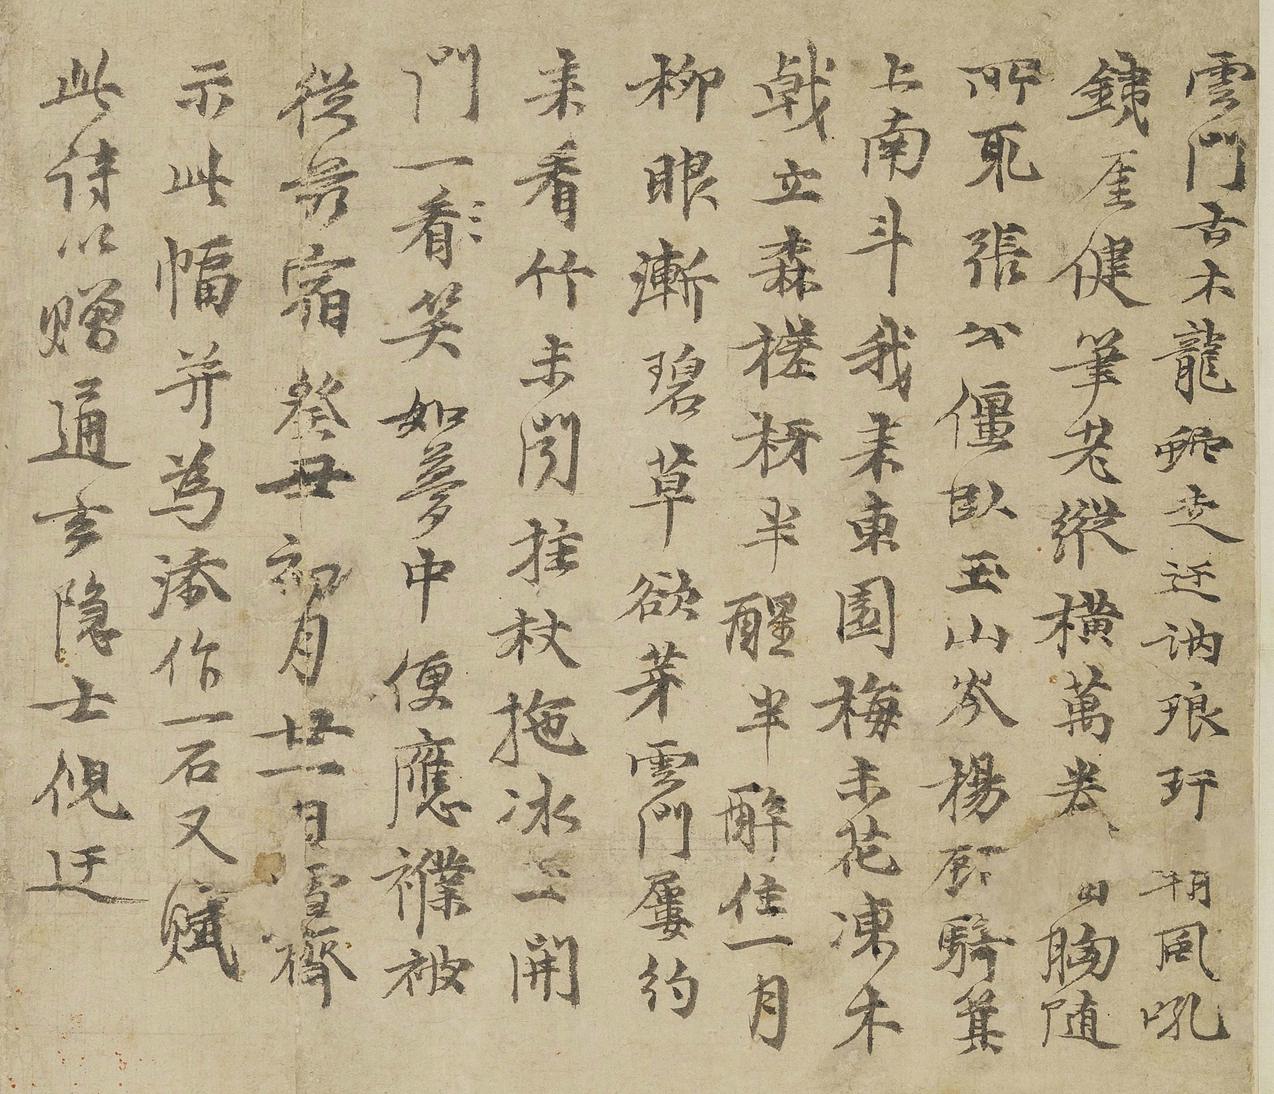 雲門古木龍虵走迂訥琅玕朔風吼
鐵厓健筆老縱橫萬卷胸隨
所取張公僵臥玉山岑楊顧騎箕
上南斗我来東園梅未花凍木
戟立森槎枒半醒半醉住一月
柳眼漸碧草欲芽雲門屢約
来看竹未閒拄杖拖冰上開
門一看笑如夢中便應襆被
從茲宿癸丑初月廿一日雪齋
示此幅并為添作一石又賦
此詩以贈通玄隐士倪迂